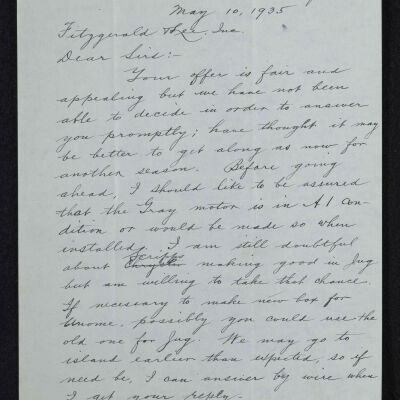 May 10, 1935
Fitzgerald & Lee, Inc.
Dear Sirs:-
Your offer is fair and
appealing but we have not been
able to decide in order to answer
you promptly; have thought it may
be better to get along as now for
another season. Before going
ahead, I should like to be assured
that the Gray motor is in A1 con-
dition or would be made so when
installed. I am still doubtful
about Scripps making good in Jug
but am willing to take that chance.
If necessary to make new box for
possibly you could use the
old one for Jug. We may go to
island earlier than expected, so if
need be, I can answer by wire when
I get your reply.